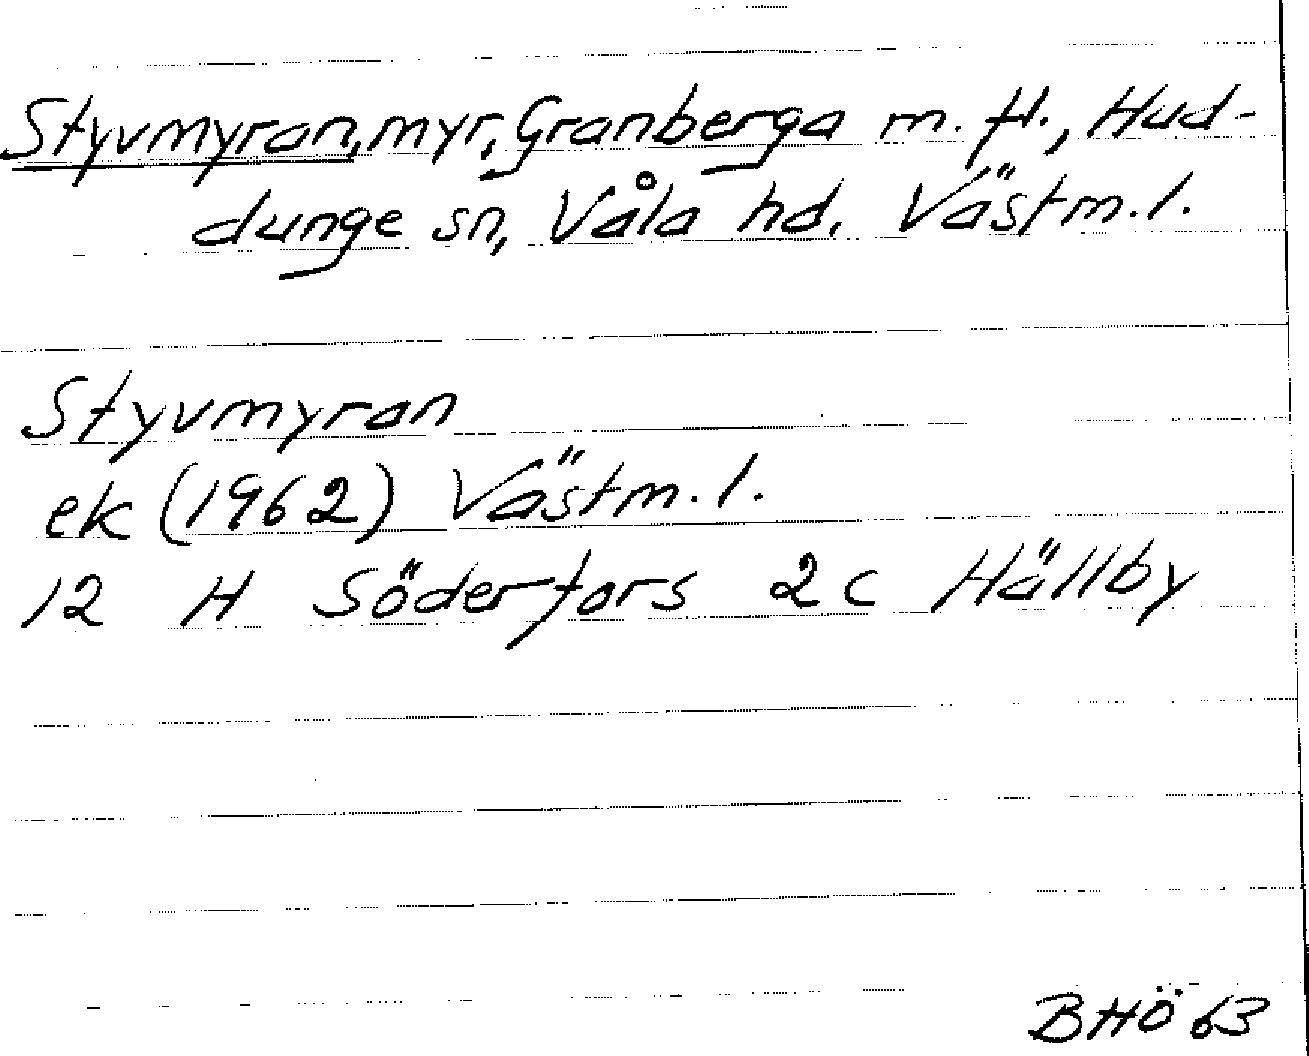 Styvmyran, myr, Granberga m. fl., Hud-
dunge sn, Våla hd. Västm.l.
Styvmyran
ek (1962) Västm.l.
12 H Söderfors 2 c Hällby
BHÖ 63